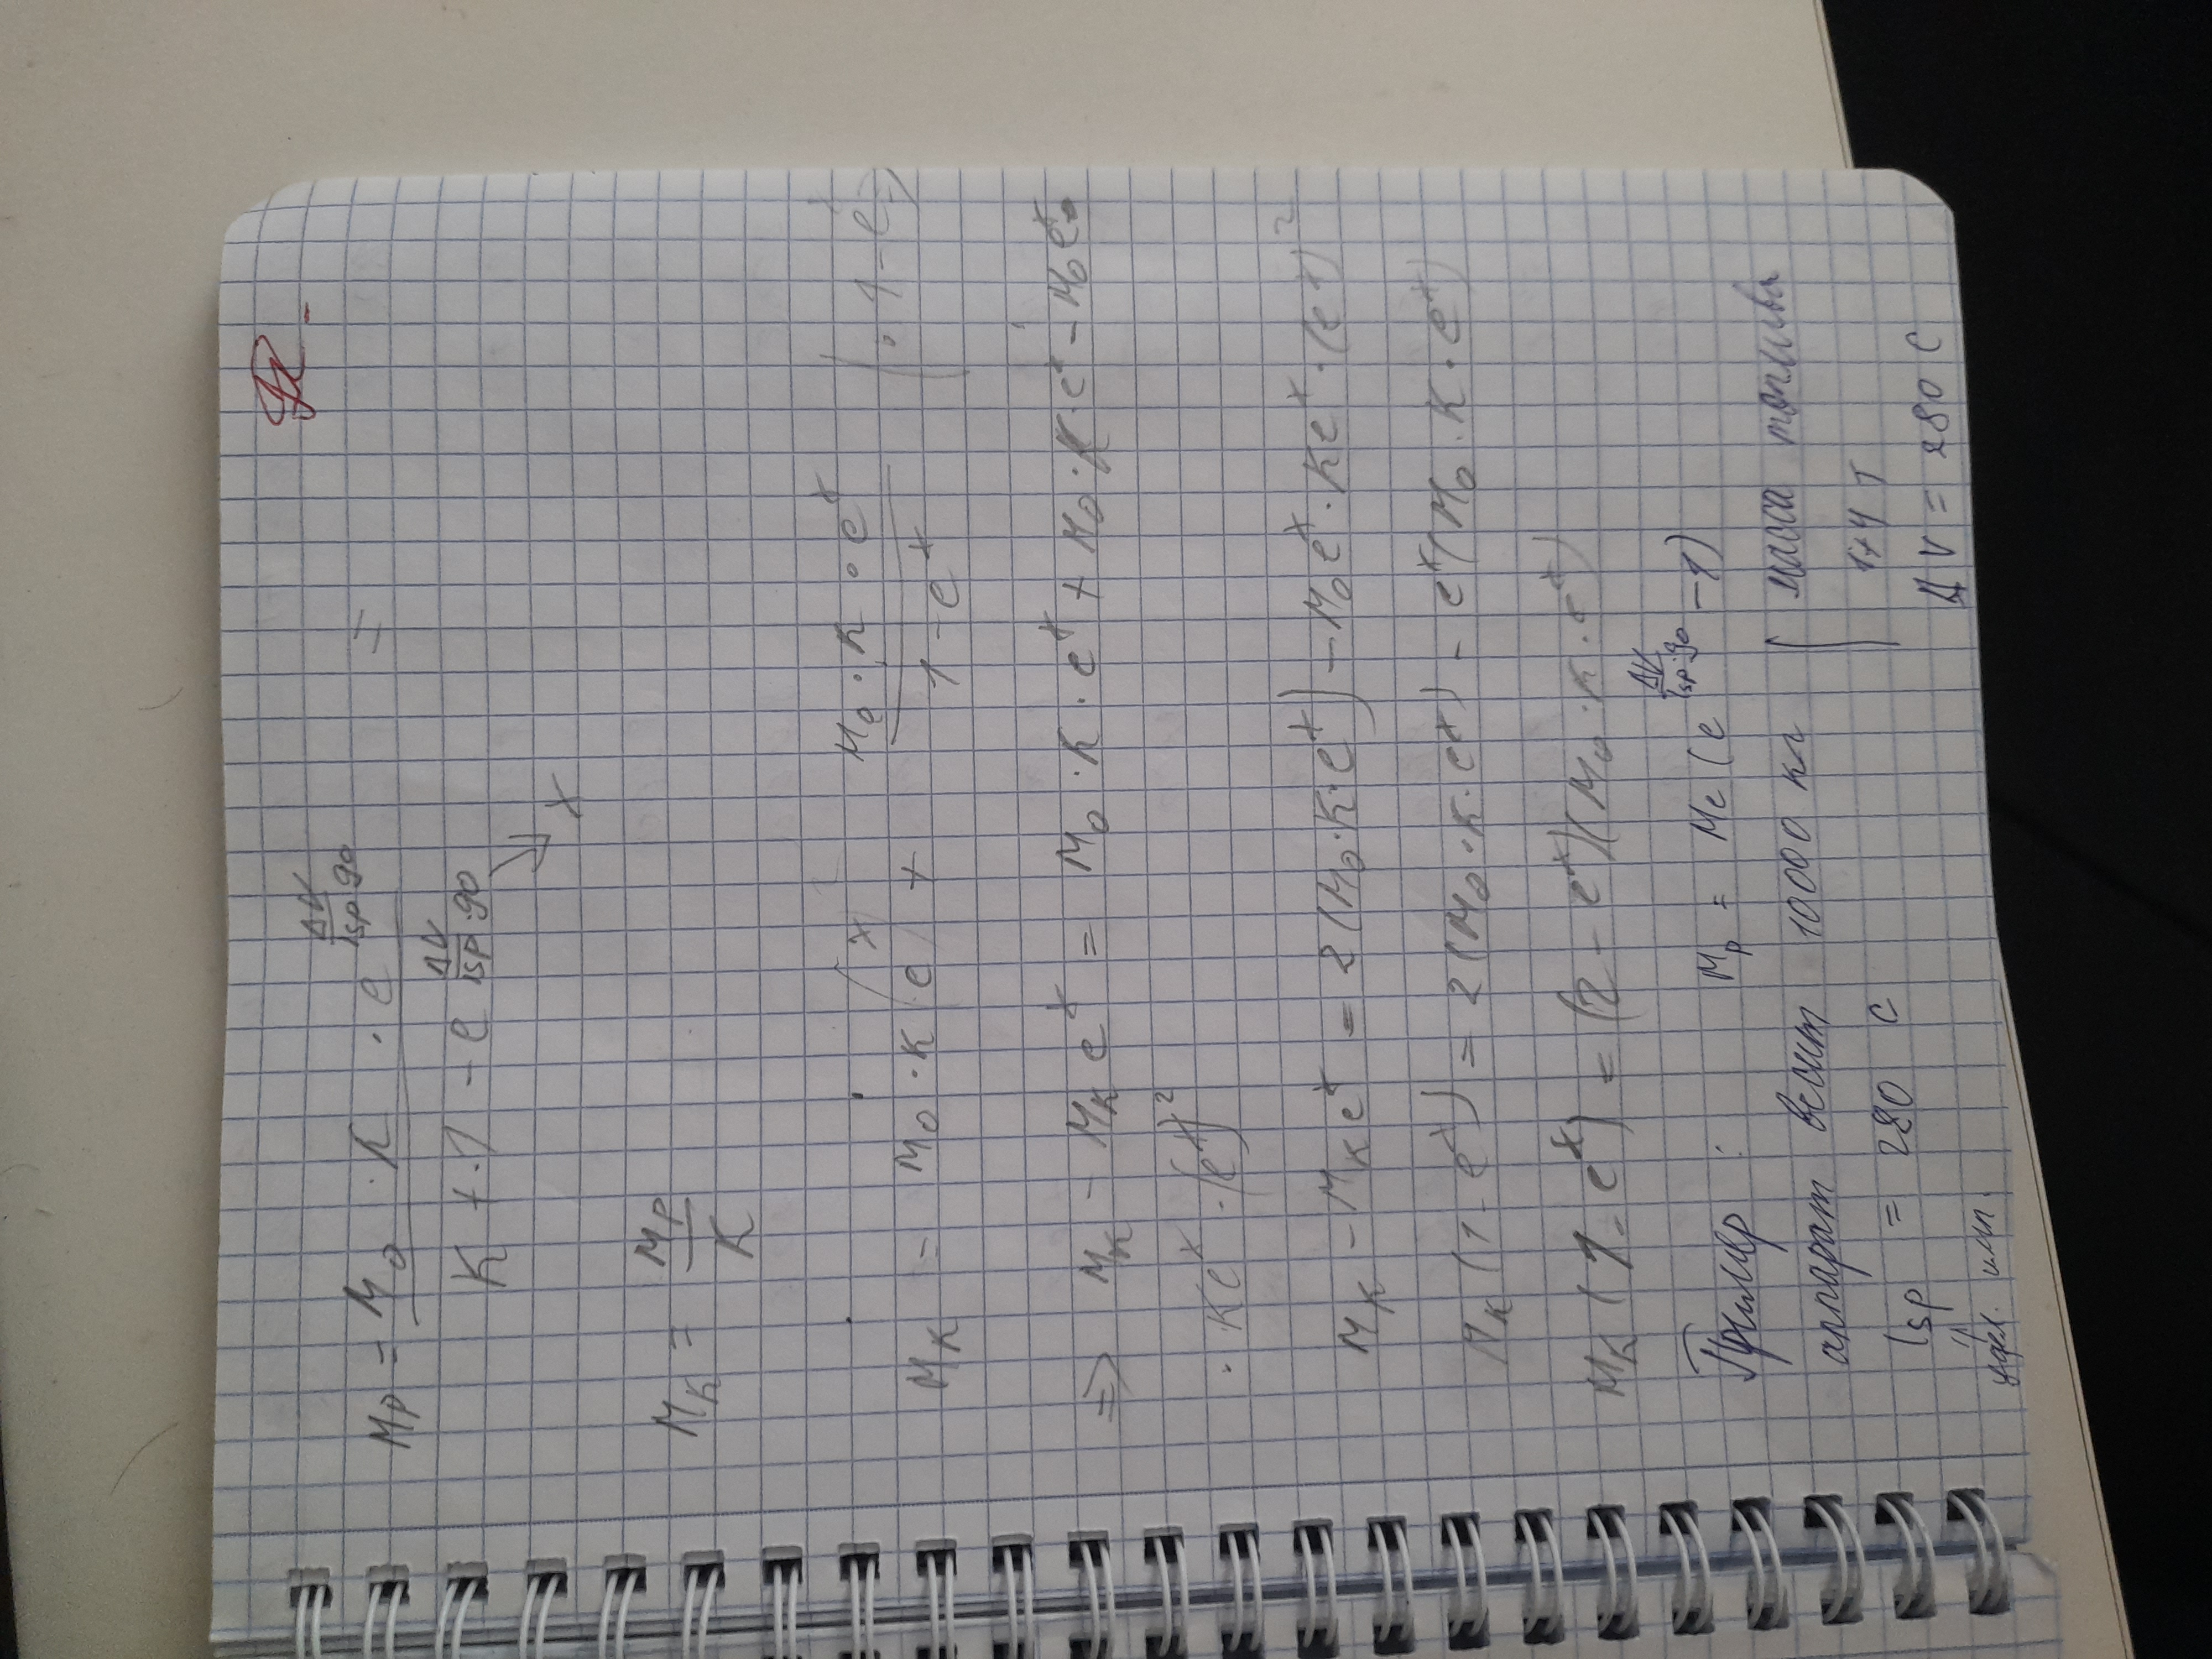 Mp = M₀ · K · e^(ΔV / Isp·g₀) / (K + 1 - e^(ΔV / Isp·g₀)) =
x
Mк = Mp / K
Mк = M₀ · K (e^x) + M₀ · K · e^x / (1 - e^x) | · 1 - e^x =>
=> Mк - Mк e^x = M₀ · K · e^x + M₀ · K · e^x - M₀ e^x ·
· K e^x · (e^x)²
Mк - Mк e^x = 2(M₀ · K · e^x) - M₀ e^x · K e^x · (e^x)²
Mк (1 - e^x) = 2(M₀ · K · e^x) - e^x (M₀ · K · e^x)
Mк (1 - e^x) = (2 - e^x)(M₀ · K · e^x)
Пример : Mp = Mc (e^(ΔV / Isp·g₀) - 1)
аппарат весит 10000 кг | масса топлива
1+4 т
Isp = 280 с
ΔV = 280 с
удел. имп.